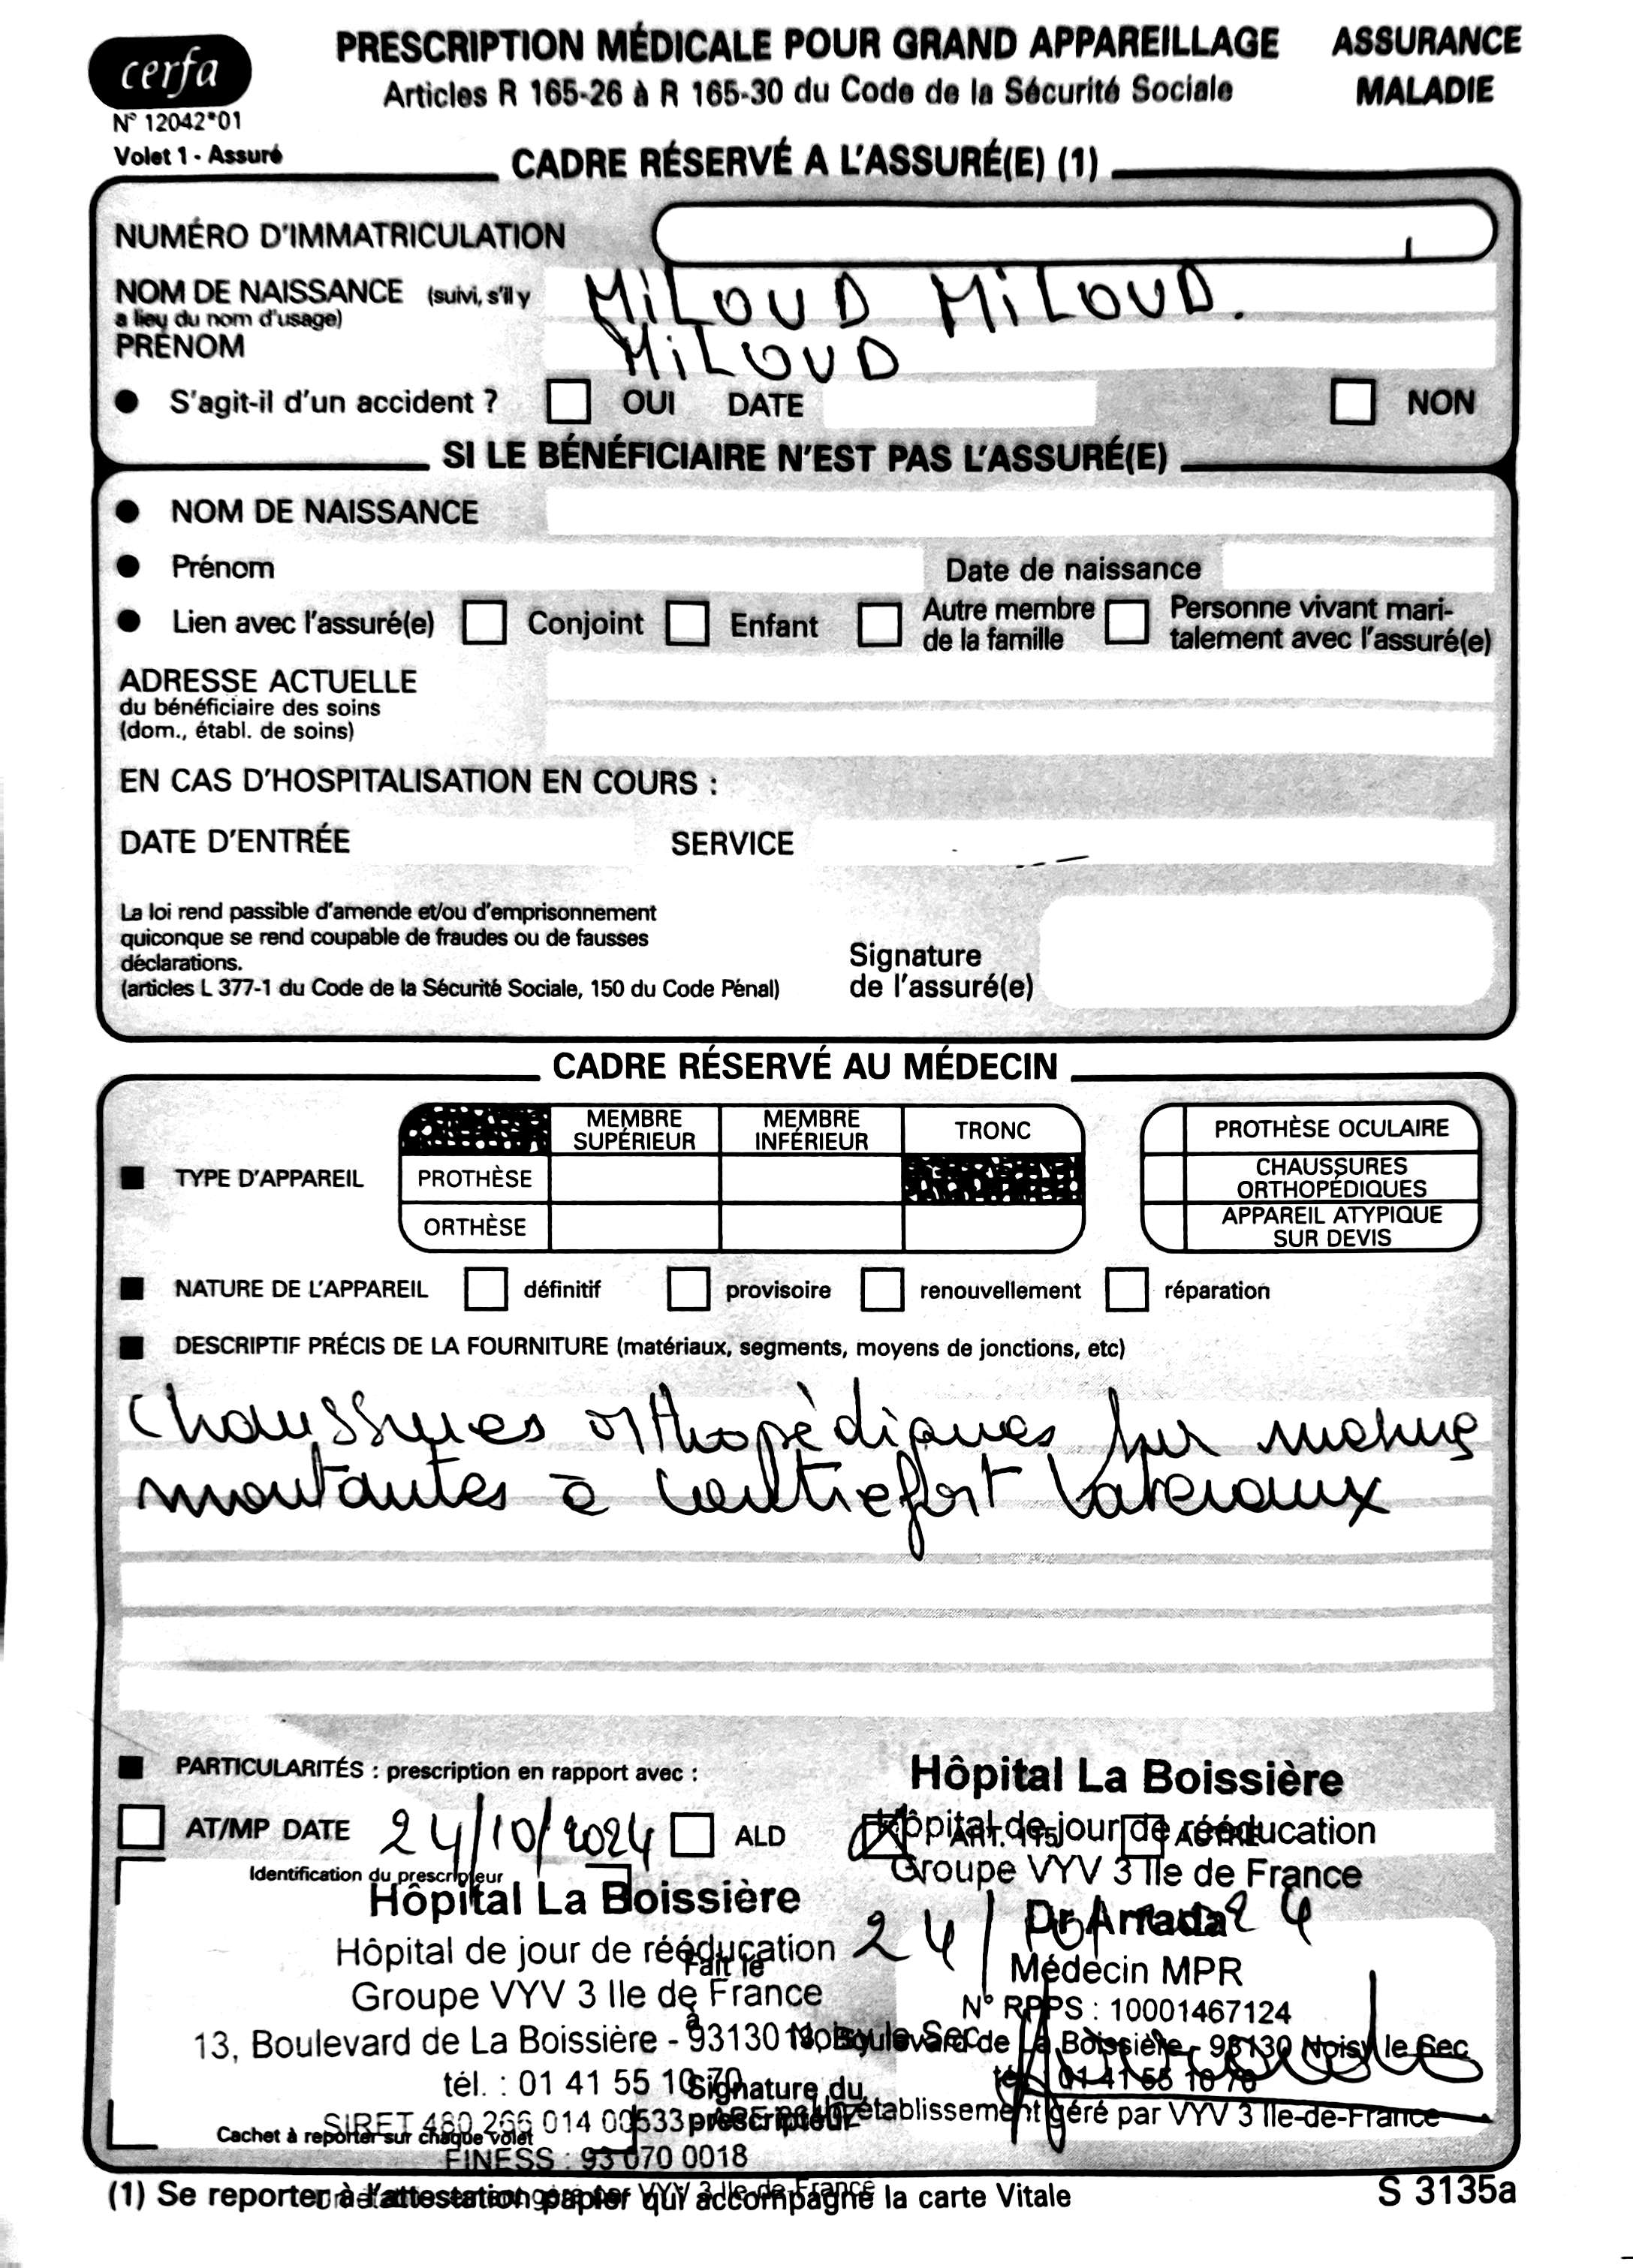 cerfa
N° 12042*01
Volet 1 - Assuré
PRESCRIPTION MÉDICALE POUR GRAND APPAREILLAGE
Articles R 165-26 à R 165-30 du Code de la Sécurité Sociale
ASSURANCE
MALADIE
CADRE RÉSERVÉ A L'ASSURÉ(E) (1)
NUMÉRO D'IMMATRICULATION
NOM DE NAISSANCE (suivi, s'il y
a lieu du nom d'usage)
MiLOUD MiLOUD.
PRÉNOM
MiLOUD
S'agit-il d'un accident ? OUI DATE NON
SI LE BÉNÉFICIAIRE N'EST PAS L'ASSURÉ(E)
NOM DE NAISSANCE
Prénom Date de naissance
Lien avec l'assuré(e) Conjoint Enfant
Autre membre
de la famille
Personne vivant mari-
talement avec l'assuré(e)
ADRESSE ACTUELLE
du bénéficiaire des soins
(dom., établ. de soins)
EN CAS D'HOSPITALISATION EN COURS :
DATE D'ENTRÉE SERVICE
La loi rend passible d'amende et/ou d'emprisonnement
quiconque se rend coupable de fraudes ou de fausses
déclarations.
(articles L 377-1 du Code de la Sécurité Sociale, 150 du Code Pénal)
Signature
de l'assuré(e)
CADRE RÉSERVÉ AU MÉDECIN
TYPE D'APPAREIL
MEMBRE
SUPÉRIEUR
MEMBRE
INFÉRIEUR
TRONC
PROTHÈSE
ORTHÈSE
PROTHÈSE OCULAIRE
CHAUSSURES
ORTHOPÉDIQUES
APPAREIL ATYPIQUE
SUR DEVIS
NATURE DE L'APPAREIL définitif provisoire renouvellement réparation
DESCRIPTIF PRÉCIS DE LA FOURNITURE (matériaux, segments, moyens de jonctions, etc)
Chaussures orthopédiques sur
montantes à contrefort lateraux
PARTICULARITÉS : prescription en rapport avec :
AT/MP DATE 24/10/2024 ALD ART. 115 AUTRE
Hôpital La Boissière
Hôpital de jour de rééducation
Groupe VYV 3 Ile de France
Dr Arrada
Médecin MPR
N° RPPS : 10001467124
13, Boulevard de La Boissière - 93130 Noisy le Sec
tél. : 01 41 55 10 70
établissement géré par VYV 3 Ile-de-France
Identification du prescripteur
Hôpital La Boissière
Hôpital de jour de rééducation
Groupe VYV 3 Ile de France
13, Boulevard de La Boissière - 93130 Noisy le Sec
tél. : 01 41 55 10 70
SIRET 480 266 014 00533
FINESS : 93 070 0018
Fait le
à
Signature du
prescripteur
Cachet à reporter sur chaque volet
(1) Se reporter à l'attestation papier qui accompagne la carte Vitale
S 3135a